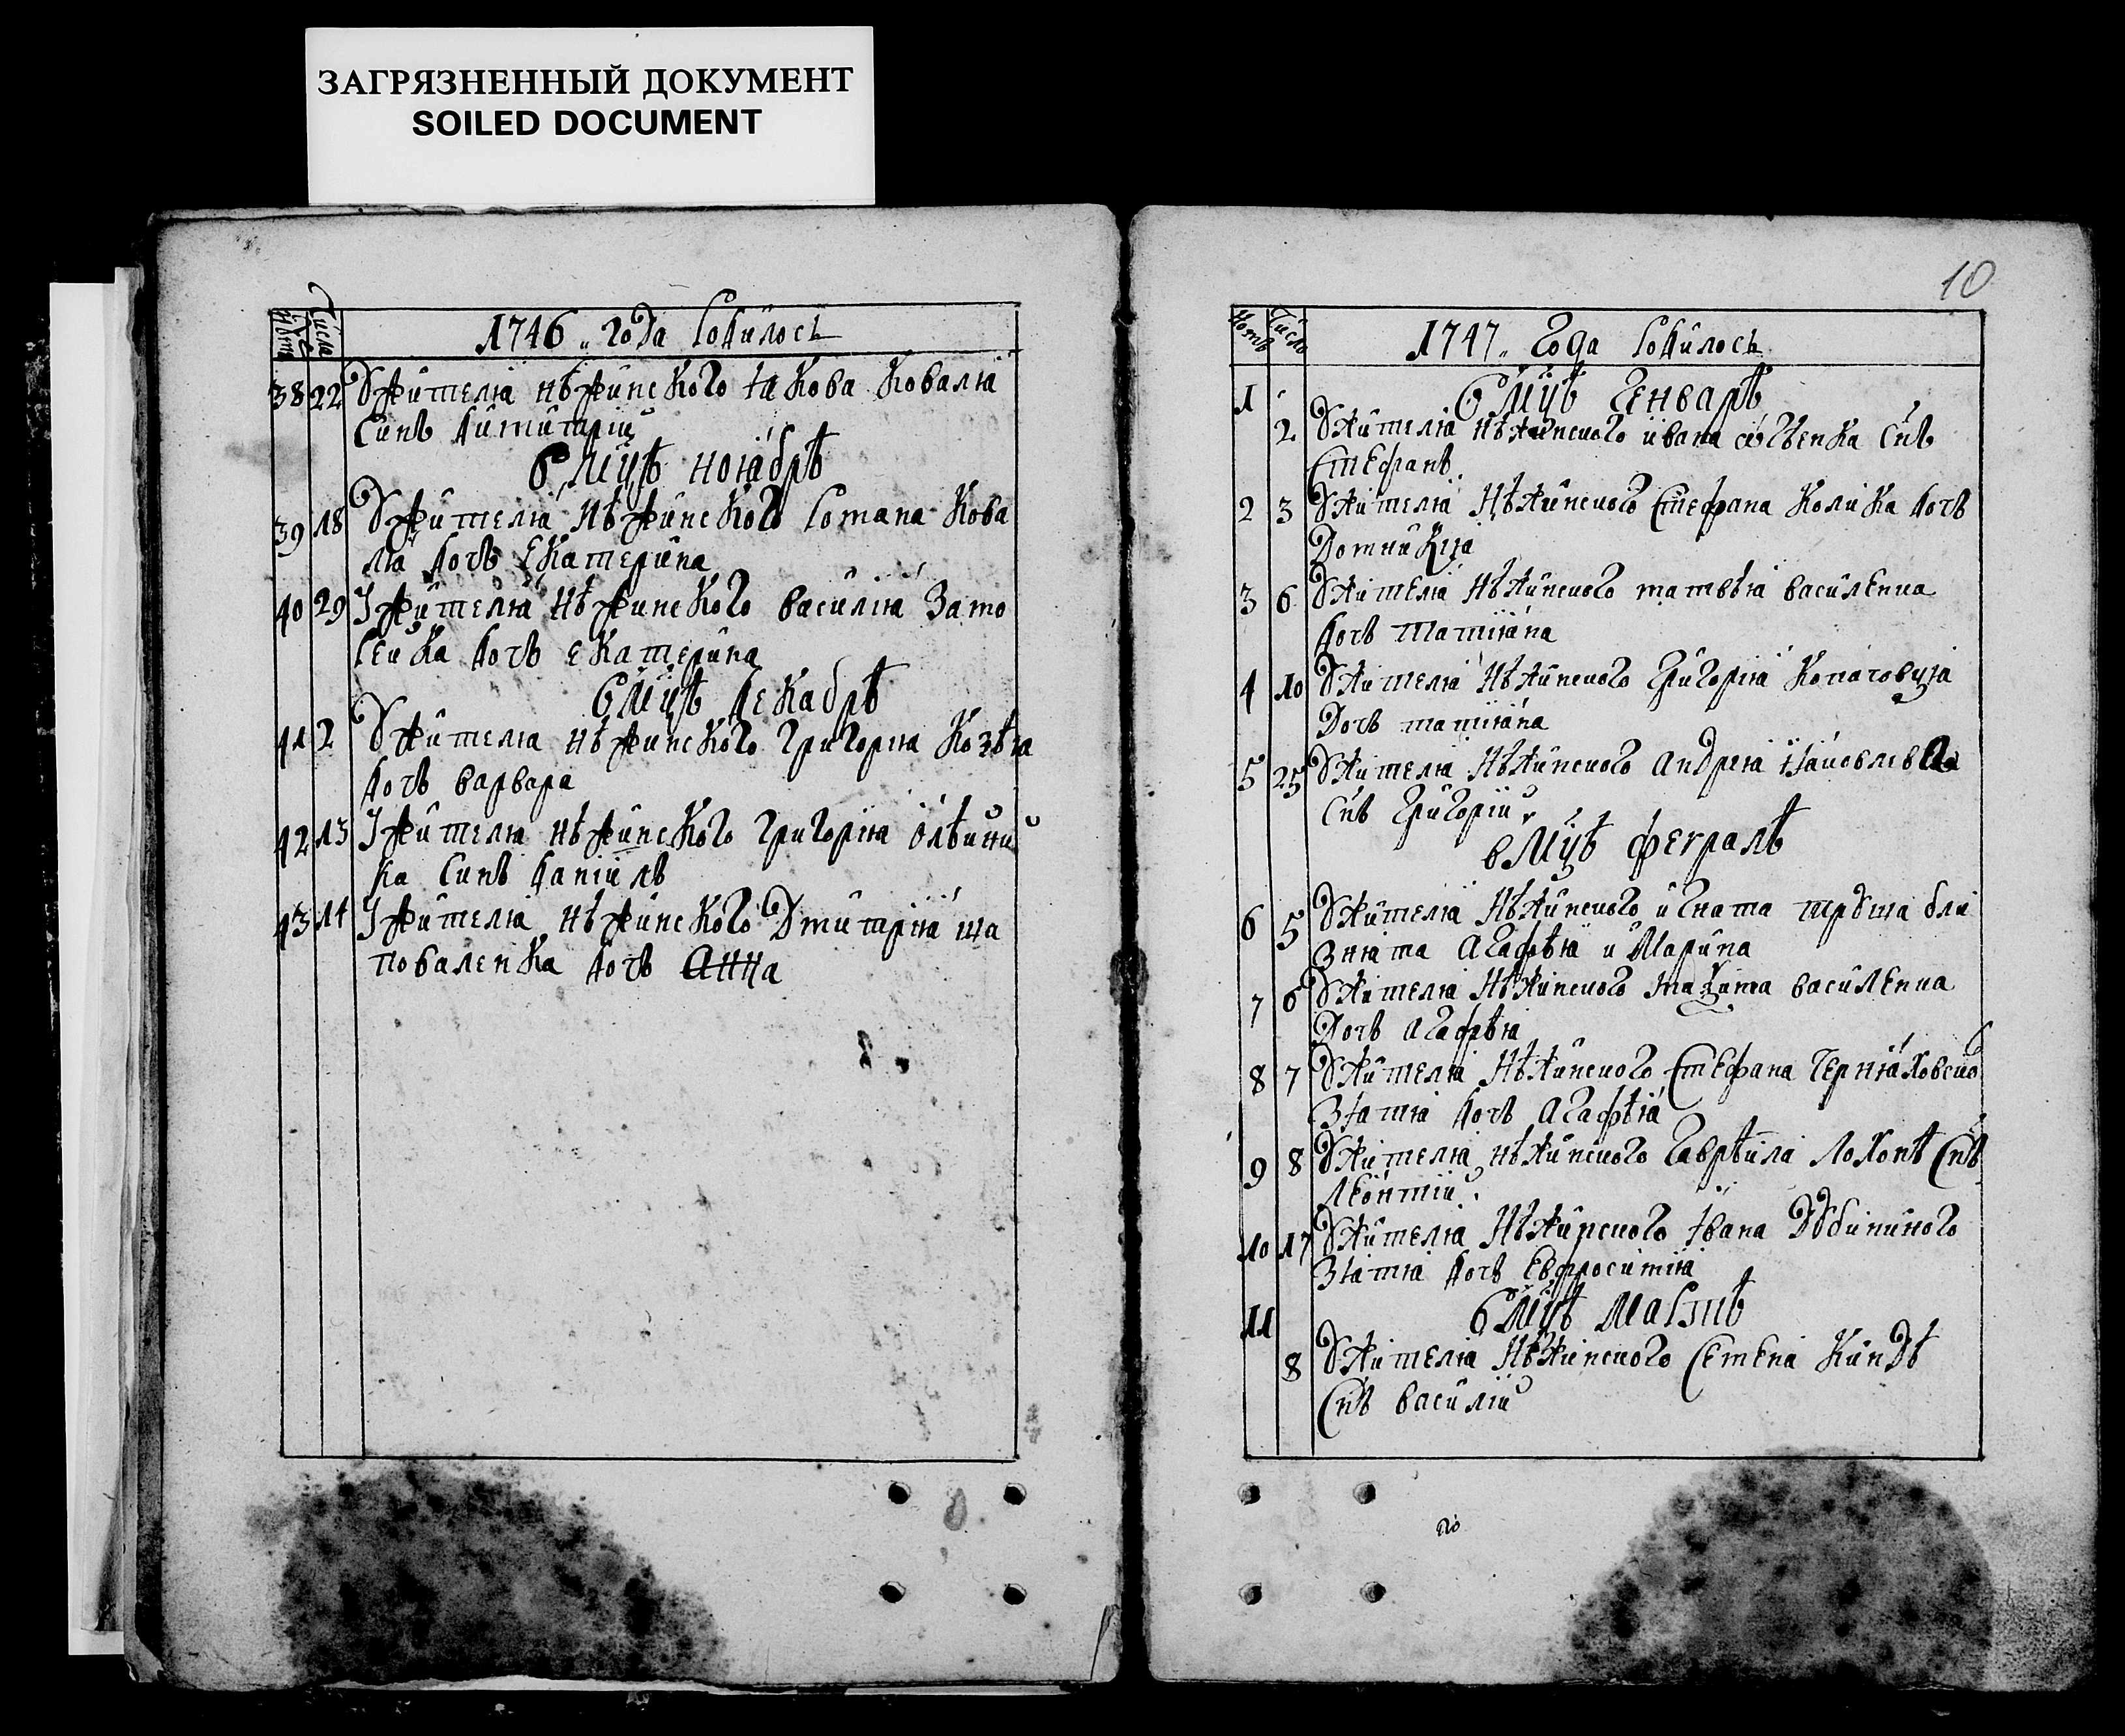 ЗАГРЯЗНЕННЫЙ ДОКУМЕНТ
SOILED DOCUMENT
Числа
1746 „ года родилось
38 22 У жителя нѣжинского Якова Коваля
синъ Димитрій
в мцѣ ноябрѣ
39 18 У жителя нѣжинского Романа Кова
ля дочъ Екатерина
40 29 У жителя нѣжинского Василія Зато
дочъ Екатерина
в мцѣ декабрѣ
41 2 У жителя нѣжинского Григория Козѣя
дочъ Варвара
42 13 У жителя нѣжинского Григорія Олѣйни
ка синъ Даніилъ
43 14 У жителя нѣжинского Дмитрия Ша
поваленка дочъ Анна
10
Число
1747 „ Года родилось
1 в мцѣ Генварѣ
2 У жителя нѣжинского Ивана снъ
Стефанъ
2 3 У жителя нѣжинского Стефана Колика дочъ
Домникия
3 6 У жителя нѣжинского Матвѣя Василенка
дочъ Татияна
4 10 У жителя нѣжинского Григория
Дочъ Татияна
5 25 У жителя нѣжинского Андрея Яковлева
снъ Григорій
в мцѣ Февралѣ
6 5 У жителя нѣжинского Игната
Агафѣя и Марина
7 6 У жителя нѣжинского Максима Василенка
Дочъ Агафѣя
8 7 У жителя нѣжинского Стефана Черняховско
зятя дочъ Агафѣя
9 8 У жителя нѣжинского Гаврѣила снъ
Леонтій
10 17 У жителя нѣжинского Ивана
зятя дочъ Евфросиния
11 в мцѣ Мартѣ
8 У жителя нѣжинского Семена
снъ Василій
по